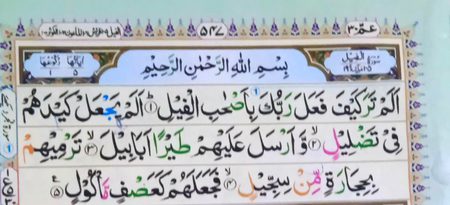 عمّ ٣٠ ٥٤٧
بِسْمِ اللّٰهِ الرَّحْمٰنِ الرَّحِيْمِ
اَلَمْ تَرَ كَيْفَ فَعَلَ رَبُّكَ بِاَصْحٰبِ الْفِيْلِ ۝١ اَلَمْ يَجْعَلْ كَيْدَهُمْ
فِيْ تَضْلِيْلٍ ۝٢ وَّاَرْسَلَ عَلَيْهِمْ طَيْرًا اَبَابِيْلَ ۝٣ تَرْمِيْهِمْ
بِحِجَارَةٍ مِّنْ سِجِّيْلٍ ۝٤ فَجَعَلَهُمْ كَعَصْفٍ مَّاْكُوْلٍ ۝٥